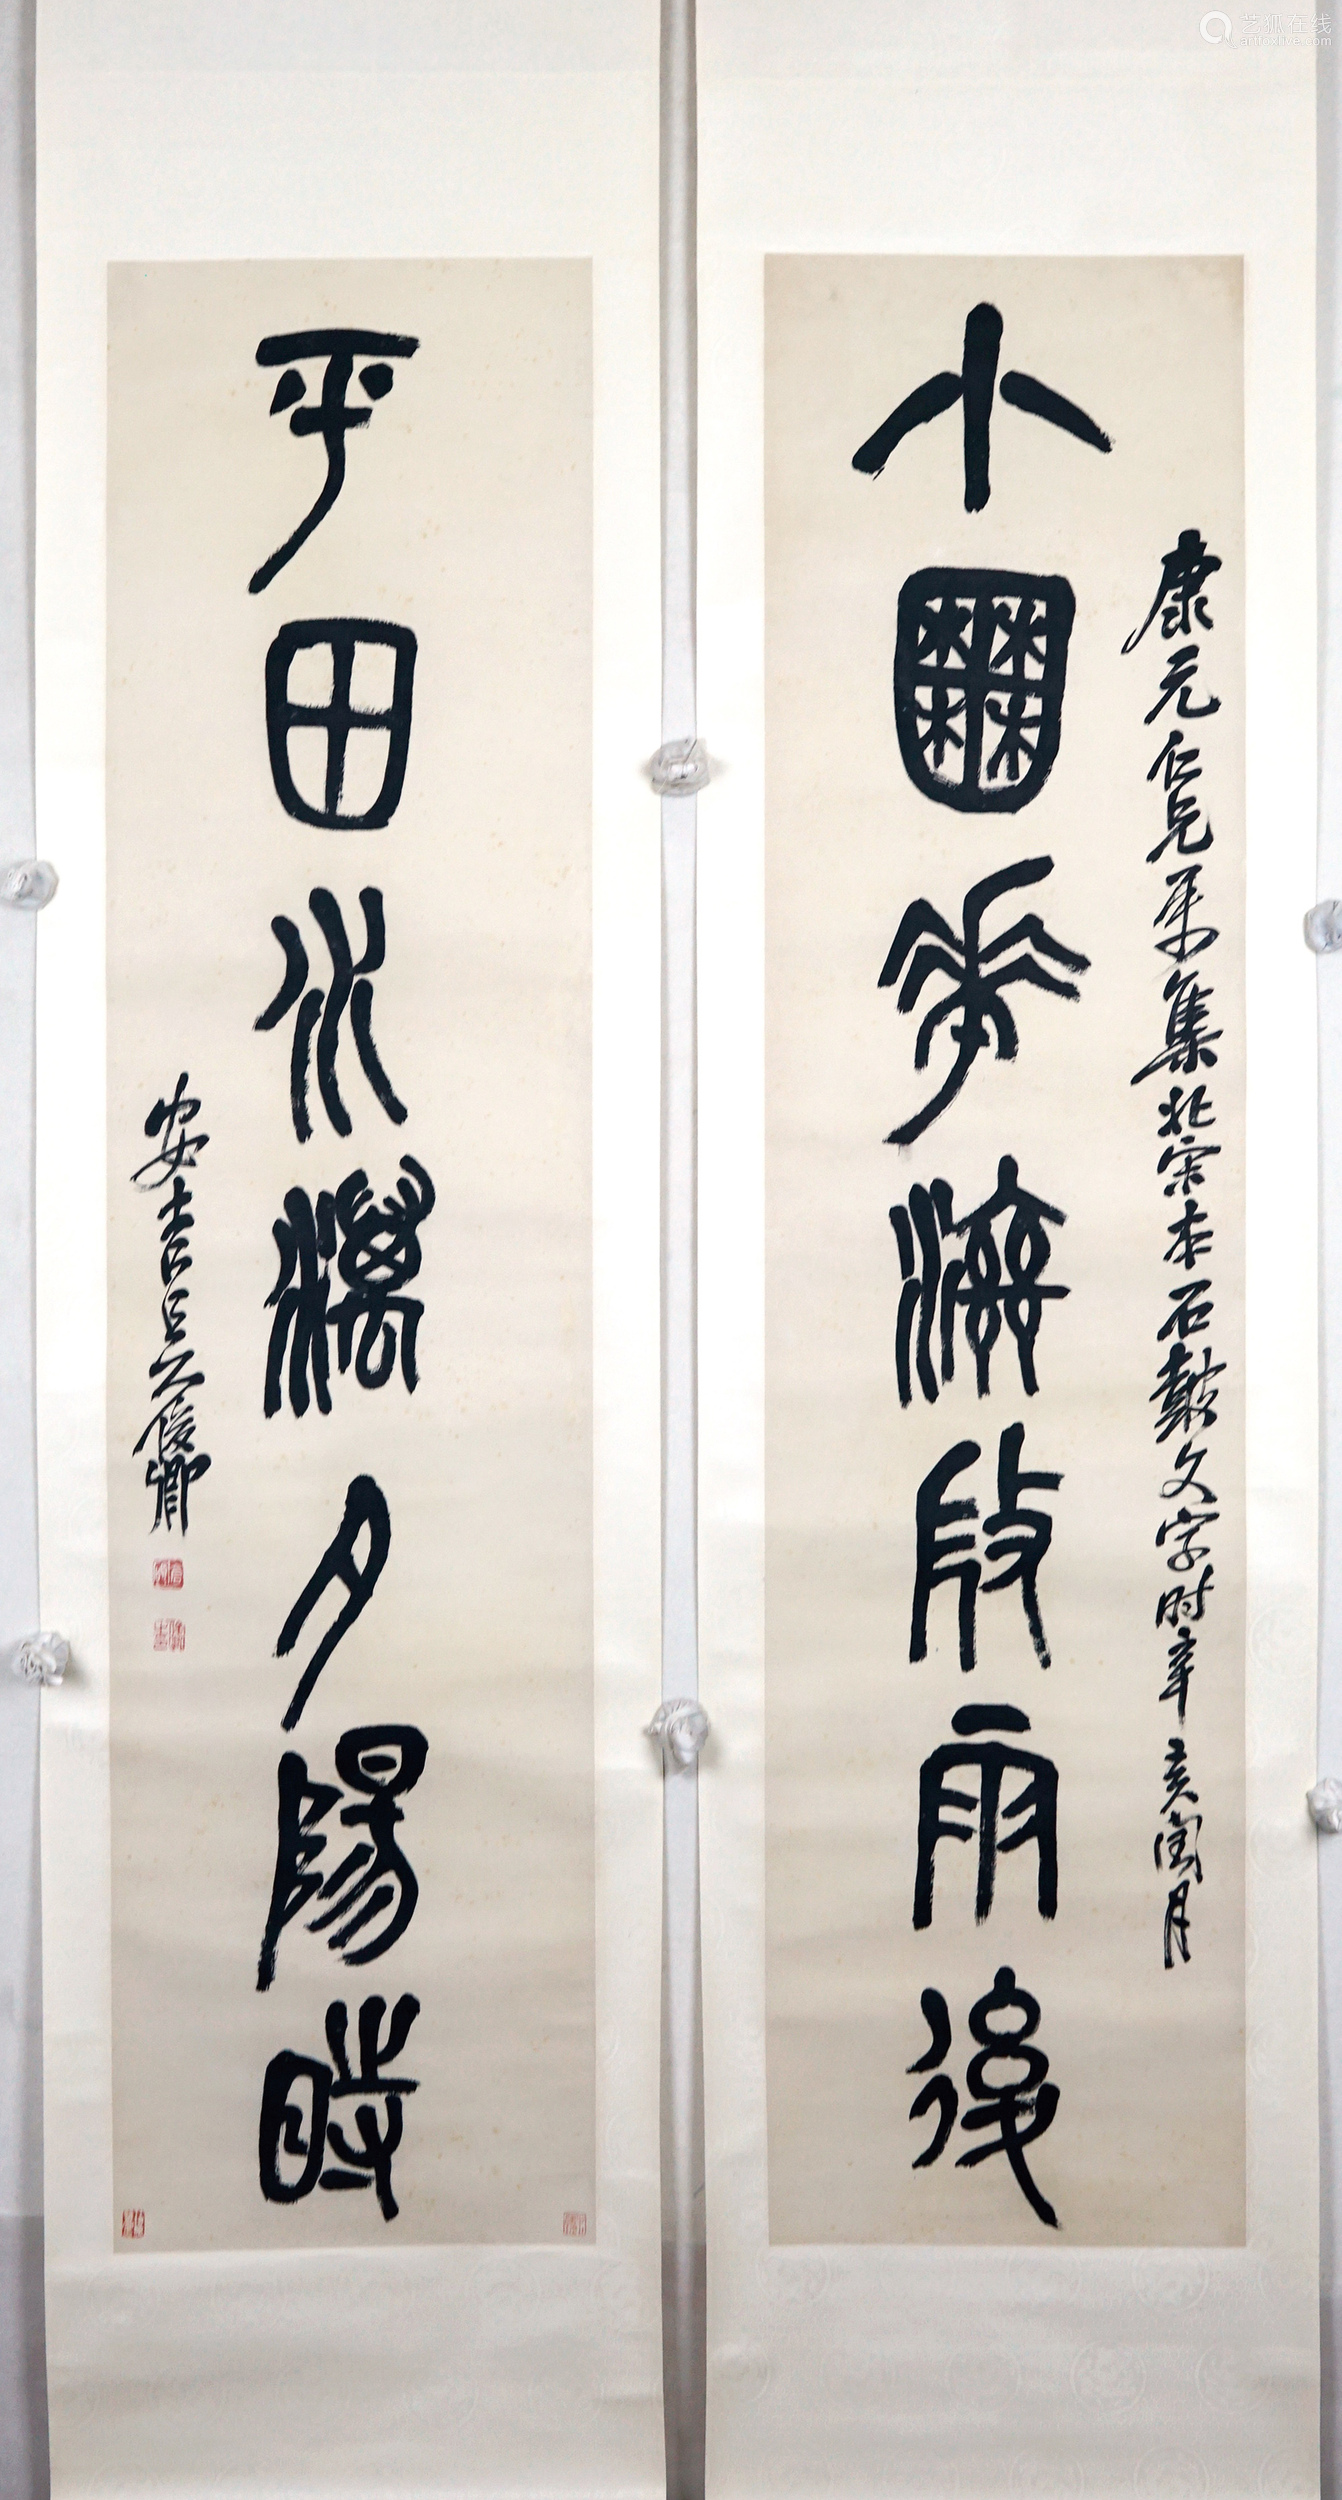 艺狐在线
artfoxlive.com
小囿華雨後
康元仁兄屬集北宋本石鼓文字时辛亥閏月
平田水澫夕陽時
安吉吳俊卿